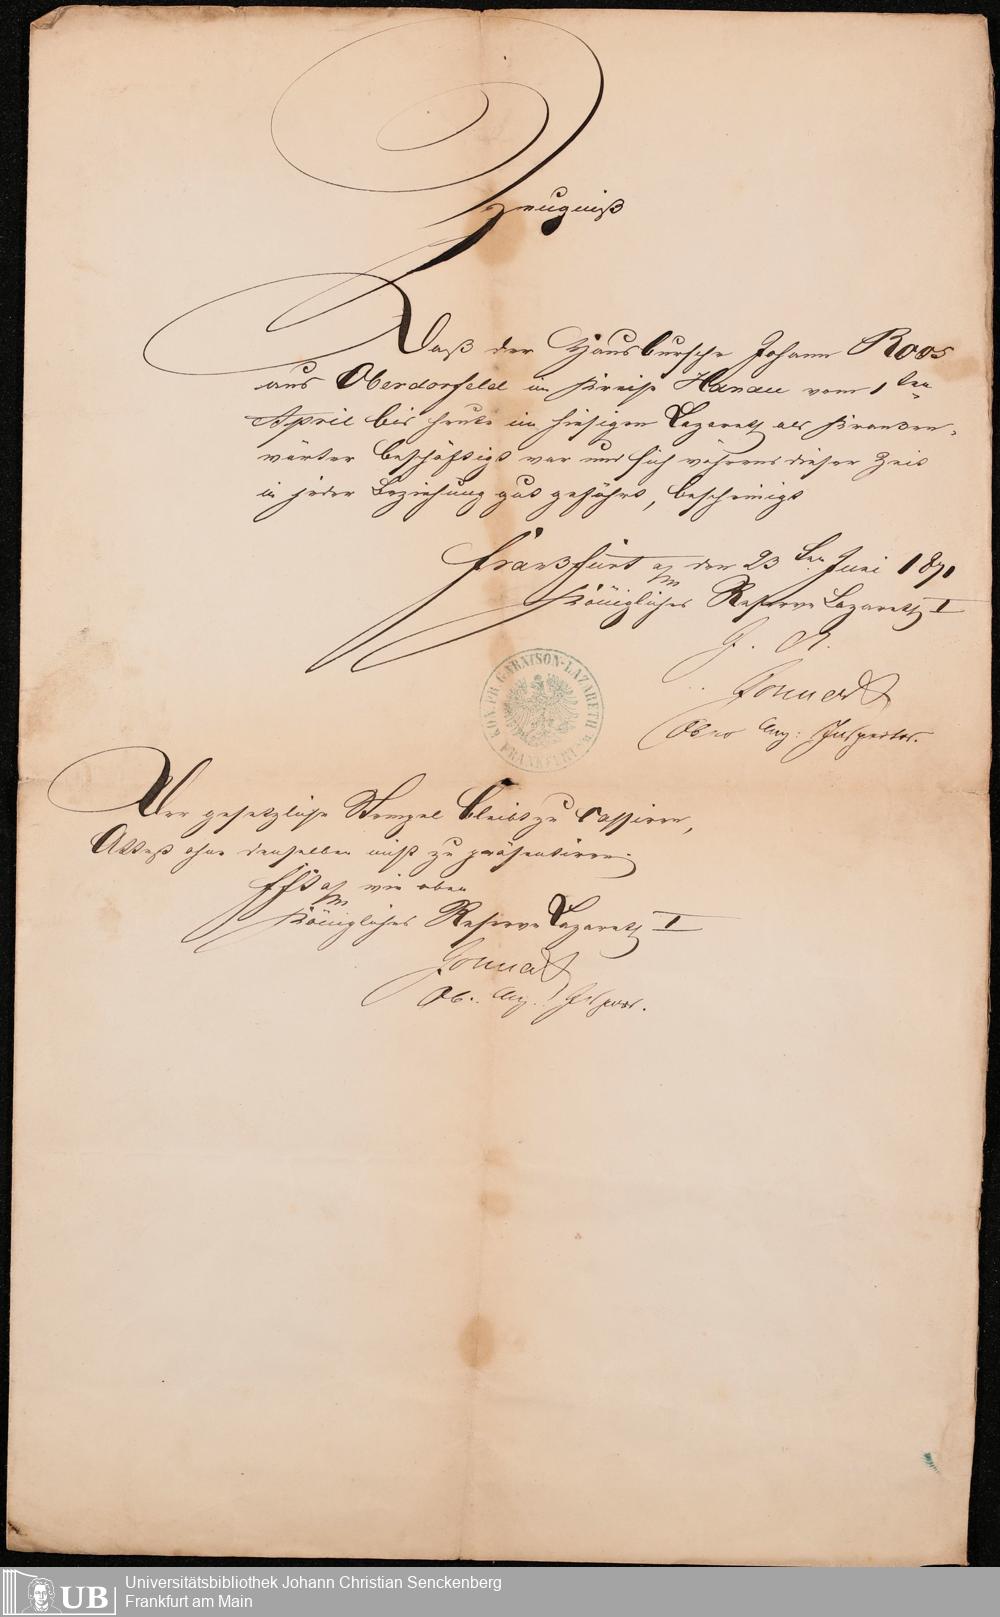 Zeugniß
Daß der Hausbursche Johann Roos
aus Oberdorfeld im Kreise Hanau vom 1ten
April bis heute im hiesigen Lazareth als Kranken-
wärter beschäftigt war und sich während dieser Zeit
in jeder Beziehung gut geführt, bescheinigt
Frankfurt a/m den 23ten Juni 1871
Königliches Reserve Lazareth I
KÖN. PR. GARNISON-LAZARETH
FRANKFURT
Ober Inspector.
Der gesetzliche Stempel bleibt zu cassiren,
Attest ohne denselben nicht zu präsentiren.
Fft a/m wie oben
Königliches Reserve Lazareth I
Ob.
UB
Universitätsbibliothek Johann Christian Senckenberg
Frankfurt am Main